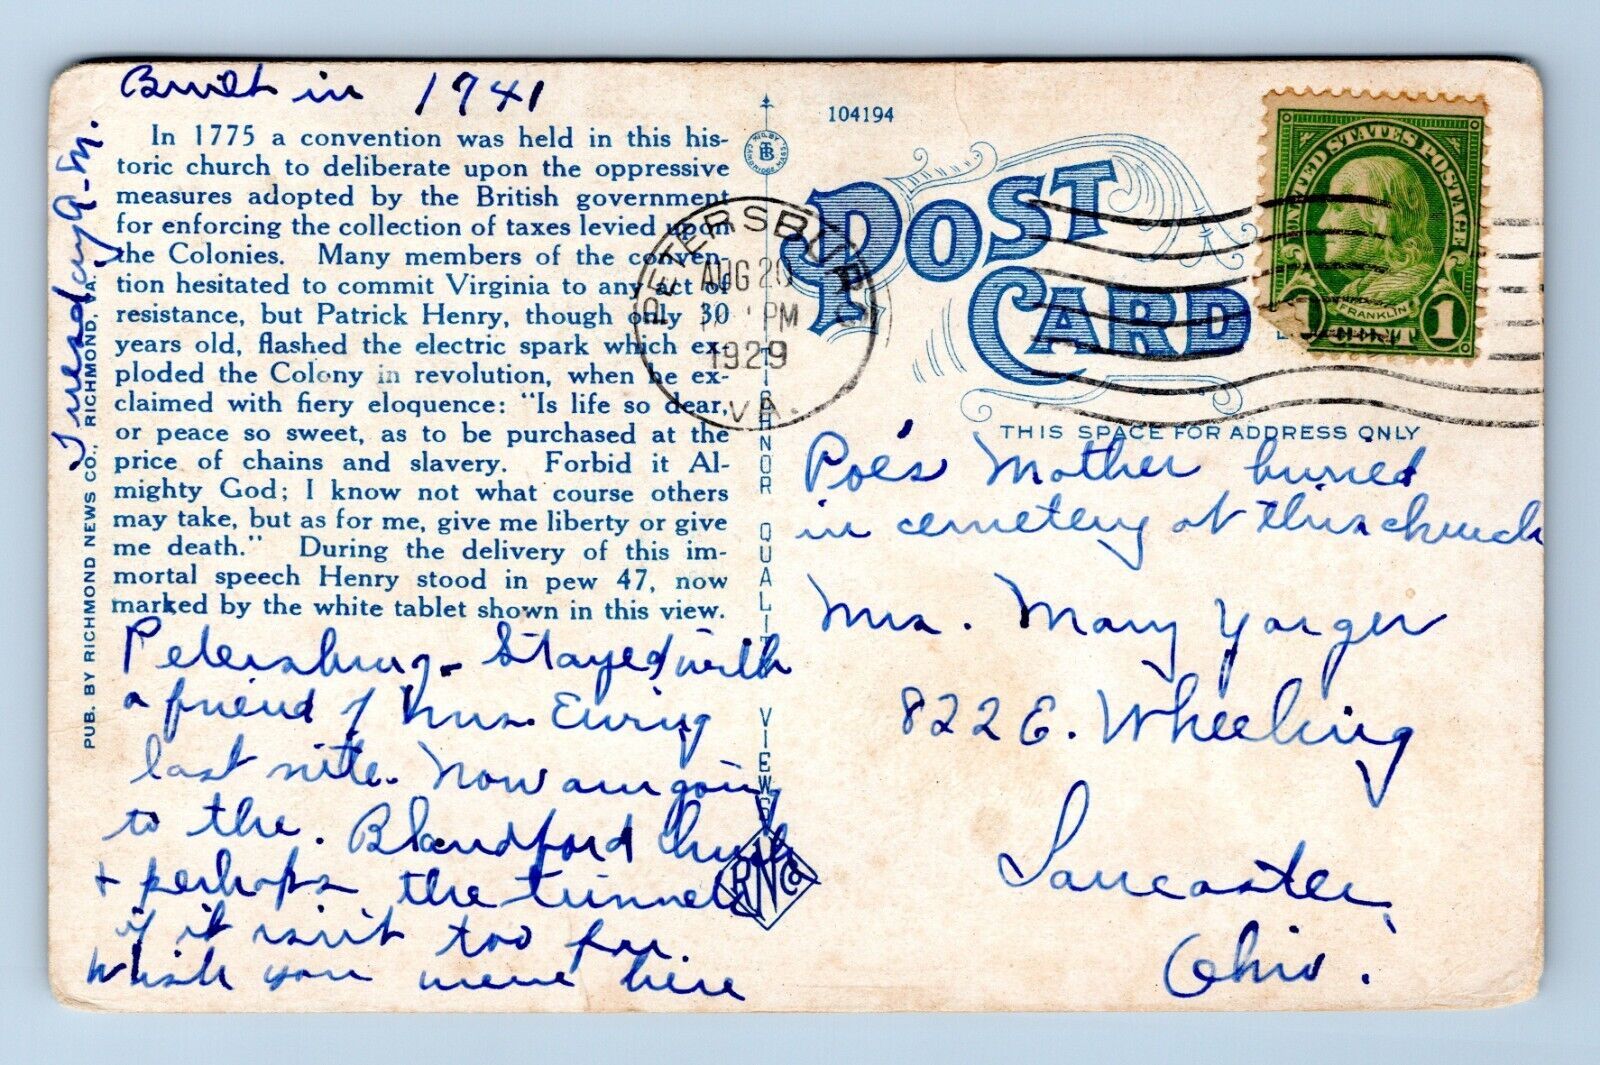 Built in 1741
Tuesday A.M.
In 1775 a convention was held in this his-
toric church to deliberate upon the oppressive
measures adopted by the British government
for enforcing the collection of taxes levied upon
the Colonies. Many members of the conven-
tion hesitated to commit Virginia to any act of
resistance, but Patrick Henry, though only 30
years old, flashed the electric spark which ex-
ploded the Colony in revolution, when he ex-
claimed with fiery eloquence: "Is life so dear,
or peace so sweet, as to be purchased at the
price of chains and slavery. Forbid it Al-
mighty God; I know not what course others
may take, but as for me, give me liberty or give
me death." During the delivery of this im-
mortal speech Henry stood in pew 47, now
marked by the white tablet shown in this view.
Petersburg - Stayed with
a friend of Mrs. Ewing
last nite. Now am going
to the. Blandford Church
+ perhaps the tunnel
if it isn't too far.
Wish you were here
PUB. BY RICHMOND NEWS CO., RICHMOND, VA.
TICHNOR QUALITY VIEWS
RNCo
104194
POST
CARD
PETERSBURG
AUG 20
PM
1929
VA.
UNITED STATES POSTAGE
FRANKLIN
1
THIS SPACE FOR ADDRESS ONLY
Poe's Mother buried
in cemetery at this church
Mrs. Mary Yarger
822 E. Wheeling
Lancaster,
Ohio.